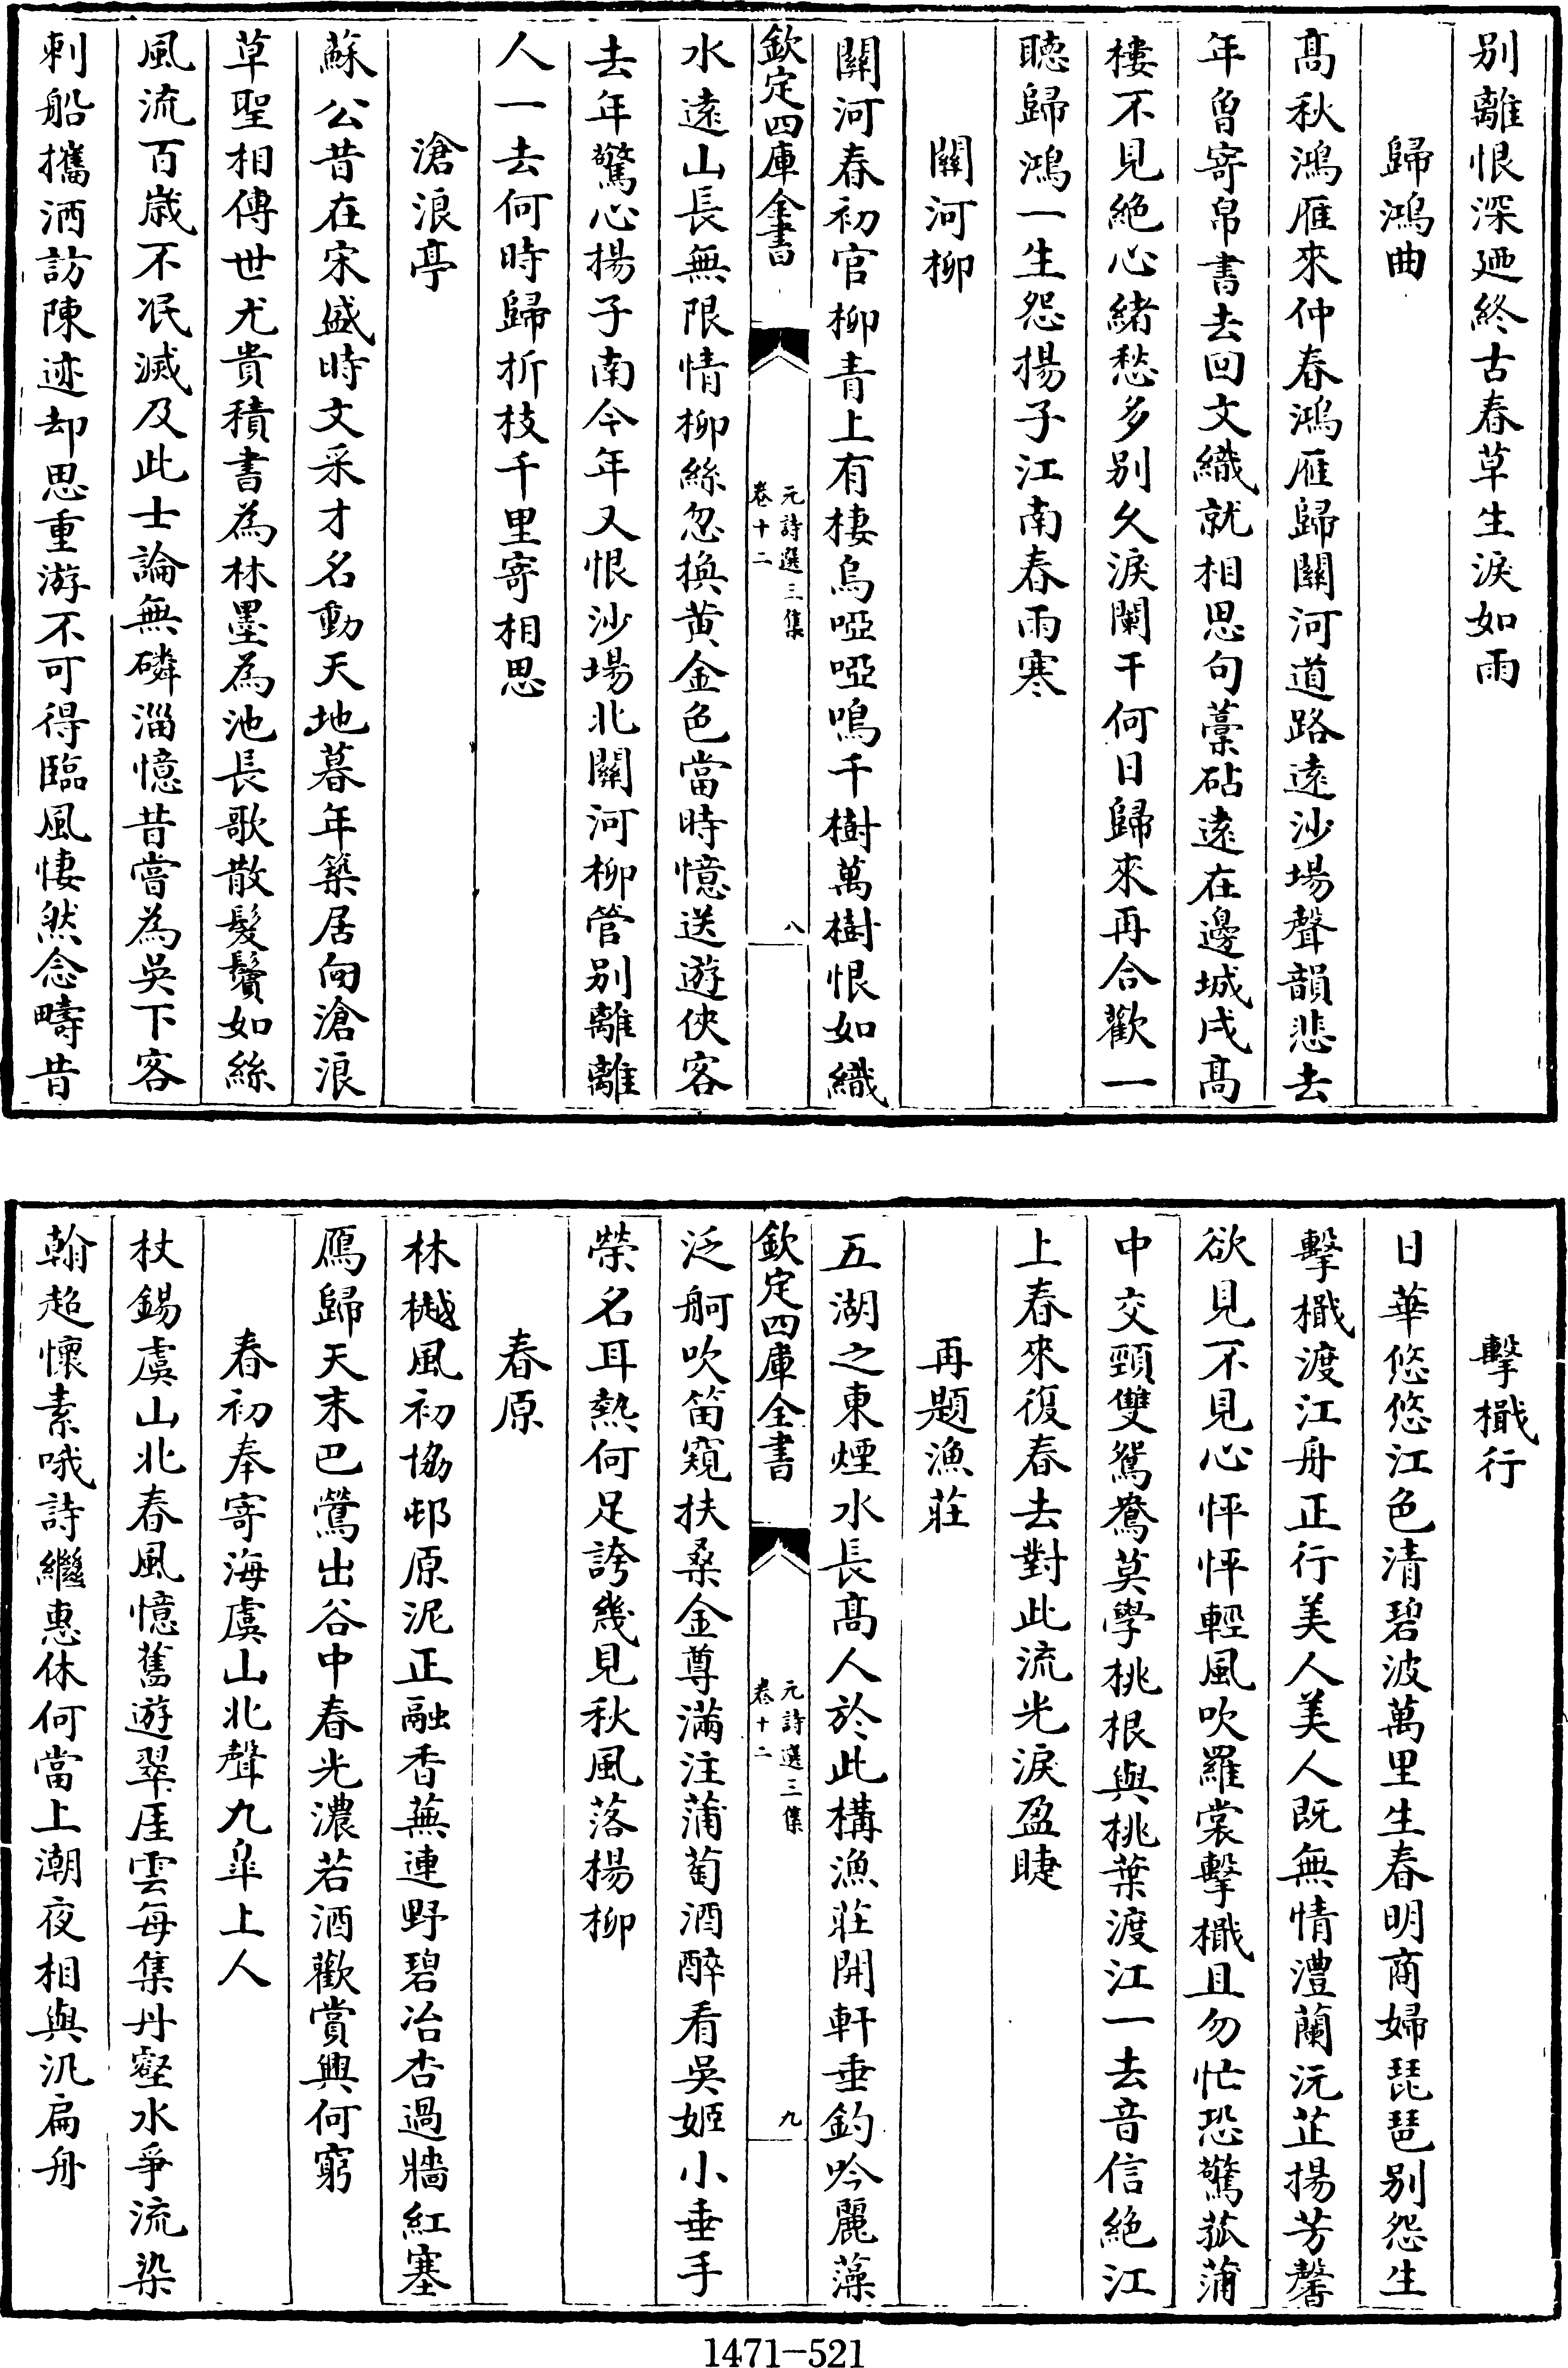 别離恨深廼終古春草生淚如雨
歸鴻曲
髙秋鴻雁來仲春鴻雁歸關河道路逺沙塲聲韻悲去
年曾寄帛書去回文織就相思句藁砧逺在邊城戍髙
樓不見絶心緒愁多别久淚闌干何日歸來再合歡一
聽歸鴻一生怨揚子江南春雨寒
關河柳
關河春初官柳青上有棲烏啞啞鳴千樹萬樹恨如織
欽定四庫全書
元詩選三集
卷十二
八
水逺山長無限情柳絲忽換黄金色當時憶送遊俠客
去年驚心揚子南今年又恨沙塲北關河柳管别離離
人一去何時歸折枝千里寄相思
滄浪亭
蘇公昔在宋盛時文采才名動天地暮年築居向滄浪
草聖相傳世尤貴積書為林墨為池長歌散髮鬢如絲
風流百歳不泯滅及此士論無磷淄憶昔嘗為吳下客
刺船攜酒訪陳迹却思重游不可得臨風悽然念疇昔
擊檝行
日華悠悠江色清碧波萬里生春明商婦琵琶别怨生
擊檝渡江舟正行美人美人既無情澧蘭沅芷揚芳馨
欲見不見心怦怦輕風吹羅裳擊檝且勿忙恐驚菰蒲
中交頸雙鴛鴦莫學桃根與桃葉渡江一去音信絶江
上春來復春去對此流光淚盈睫
再題漁莊
五湖之東煙水長髙人於此構漁莊開軒垂釣吟麗藻
欽定四庫全書
元詩選三集
卷十二
九
泛舸吹笛窺扶桑金尊滿注蒲萄酒醉看吳姬小垂手
榮名耳熱何足誇幾見秋風落楊柳
春原
林樾風初協邨原泥正融香蕪連野碧冶杏過牆紅塞
鴈歸天末巴鶯出谷中春光濃若酒歡賞興何窮
春初奉寄海虞山北聲九臯上人
杖錫虞山北春風憶舊遊翠厓雲每集丹壑水爭流染
翰超懷素哦詩繼惠休何當上潮夜相與汎扁舟
1471-521